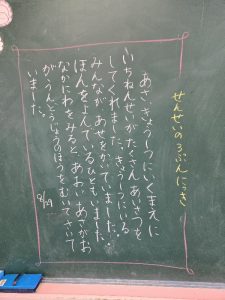 せんせいの3ぷんにっき
あさ、きょうしつにいくまえに
いちねんせいがたくさんあいさつを
してくれました。きょうしつにいる
みんなが、あせをかいていました。
ほんをよんでいるひともいました。
なかにわをみると、あおいあさがお
が、うんとうじょうのほうをむいてさいて
いました。